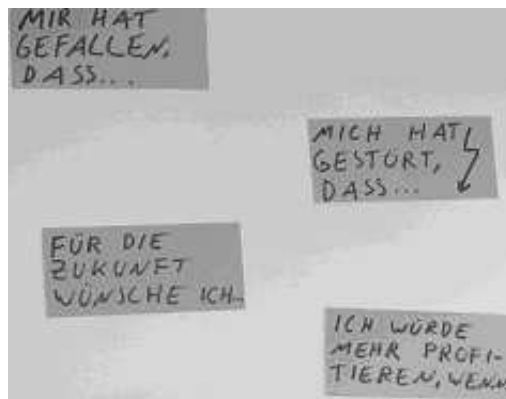 MIR HAT
GEFALLEN,
DASS...
MICH HAT
GESTÖRT,
DASS...
FÜR DIE
ZUKUNFT
WÜNSCHE ICH...
ICH WÜRDE
MEHR PROFI-
TIEREN, WENN